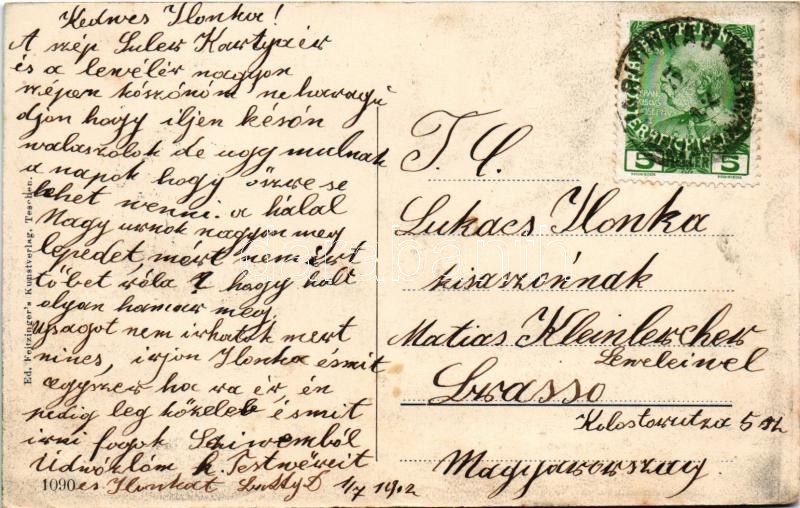 Kedwes Ilonka!
A szép Suler Kartyáér
és a lewélér nagyon
szépen köszönöm ne haragu
djon hogy iljen késön
walaszolok de ugy mulnak
a napok hogy öszwe se
lehet wenni. a hálal
Nagy urnok nagyon meg
lepedet, mért nem irt
többet róla? hogy holt
olyan hamar meg.
ujsagot nem irhatok mert
nincs, irjon Ilonka ésmit
egyszer ha ra ér én
pedig leg közeleb ésmit
irni fogok Sziwemböl
Üdwözlöm k. Testwéreit
es Ilonkat 1/7 1912
1090
Ed. Feitzinger's Kunstverlag, Teschen.
T. C.
Lukacs Ilonka
kisaszonnak
Matias Kleinlercher
Leweleiwel
Brasso
Kolostorutza 5 sz
Magyarorszag
5 HELLER 5